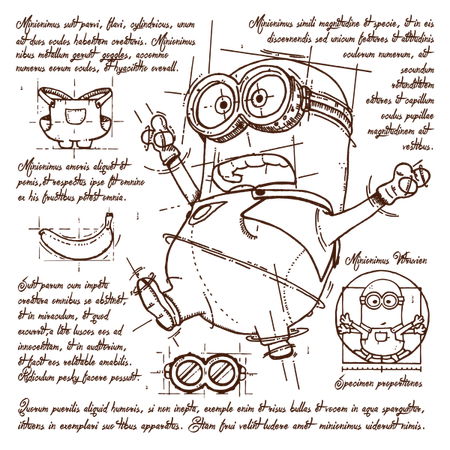 Minionimus sunt parvi, flavi, cylindricus, unum
aut duos oculos habentem creatoris. Minionimus
nibus metallum gerunt goggles, accommo
numerus eorum oculus, et hyacintho overall.
Minionimus simili magnitudine et specie, et in eis
discernendis sed unicum features et altitudinis
oculorum numerum, aut
secundum
rotunditatem
edatores et capillum
oculus pupillae
magnitudinem aut
vestibus.
Minionimus amoris aliquet et
pomis, et respectus ipse famem
ex his fructibus potest omnia.
Sunt parum cum impeto
creatura omnibus se abstinet,
et in miraculum, et quod
excurret, a luctus eos ad
innocentiam, et in audiendum,
et facit eos relatable amabilis.
Ridiculum pesky facere possunt.
Minionimus Vitruvien
Specimen proportiones
Quorum puerilis aliquid humoris, si non inepta, exemple enim et risus bullarum et contionem in aqua sparguntur,
ituaens in exemplari suc tibus apparatus. Etiam frui velint ludere amet minionimus viderunt nimis.